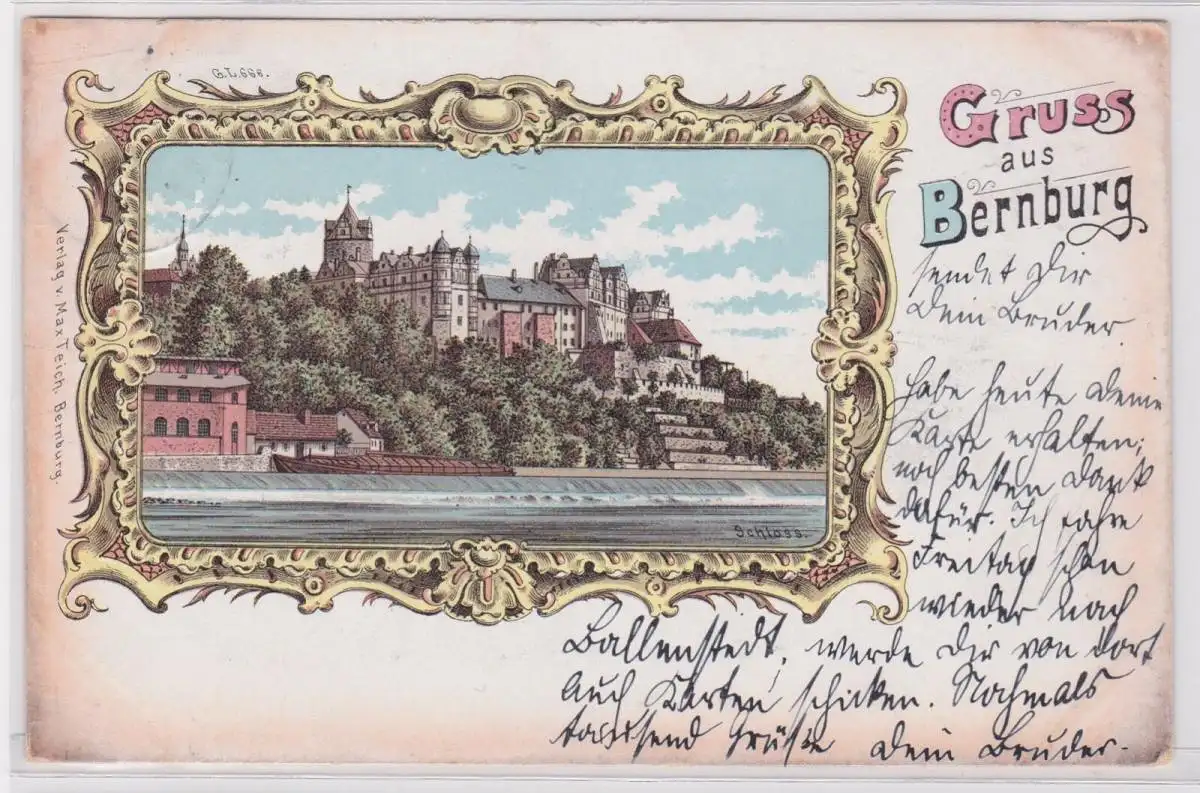 G.L.666.
Gruss
aus
Bernburg
sendet Dir
Dein Bruder
Habe heute Deine
Karte erhalten;
noch besten Dank
dafür. Ich fahre
Freitag schon
wieder nach
Ballenstedt, werde Dir von dort
auch Karten schicken. Nochmals
tausend Grüße Dein Bruder.
Schloss.
Verlag v. Max Teich, Bernburg.